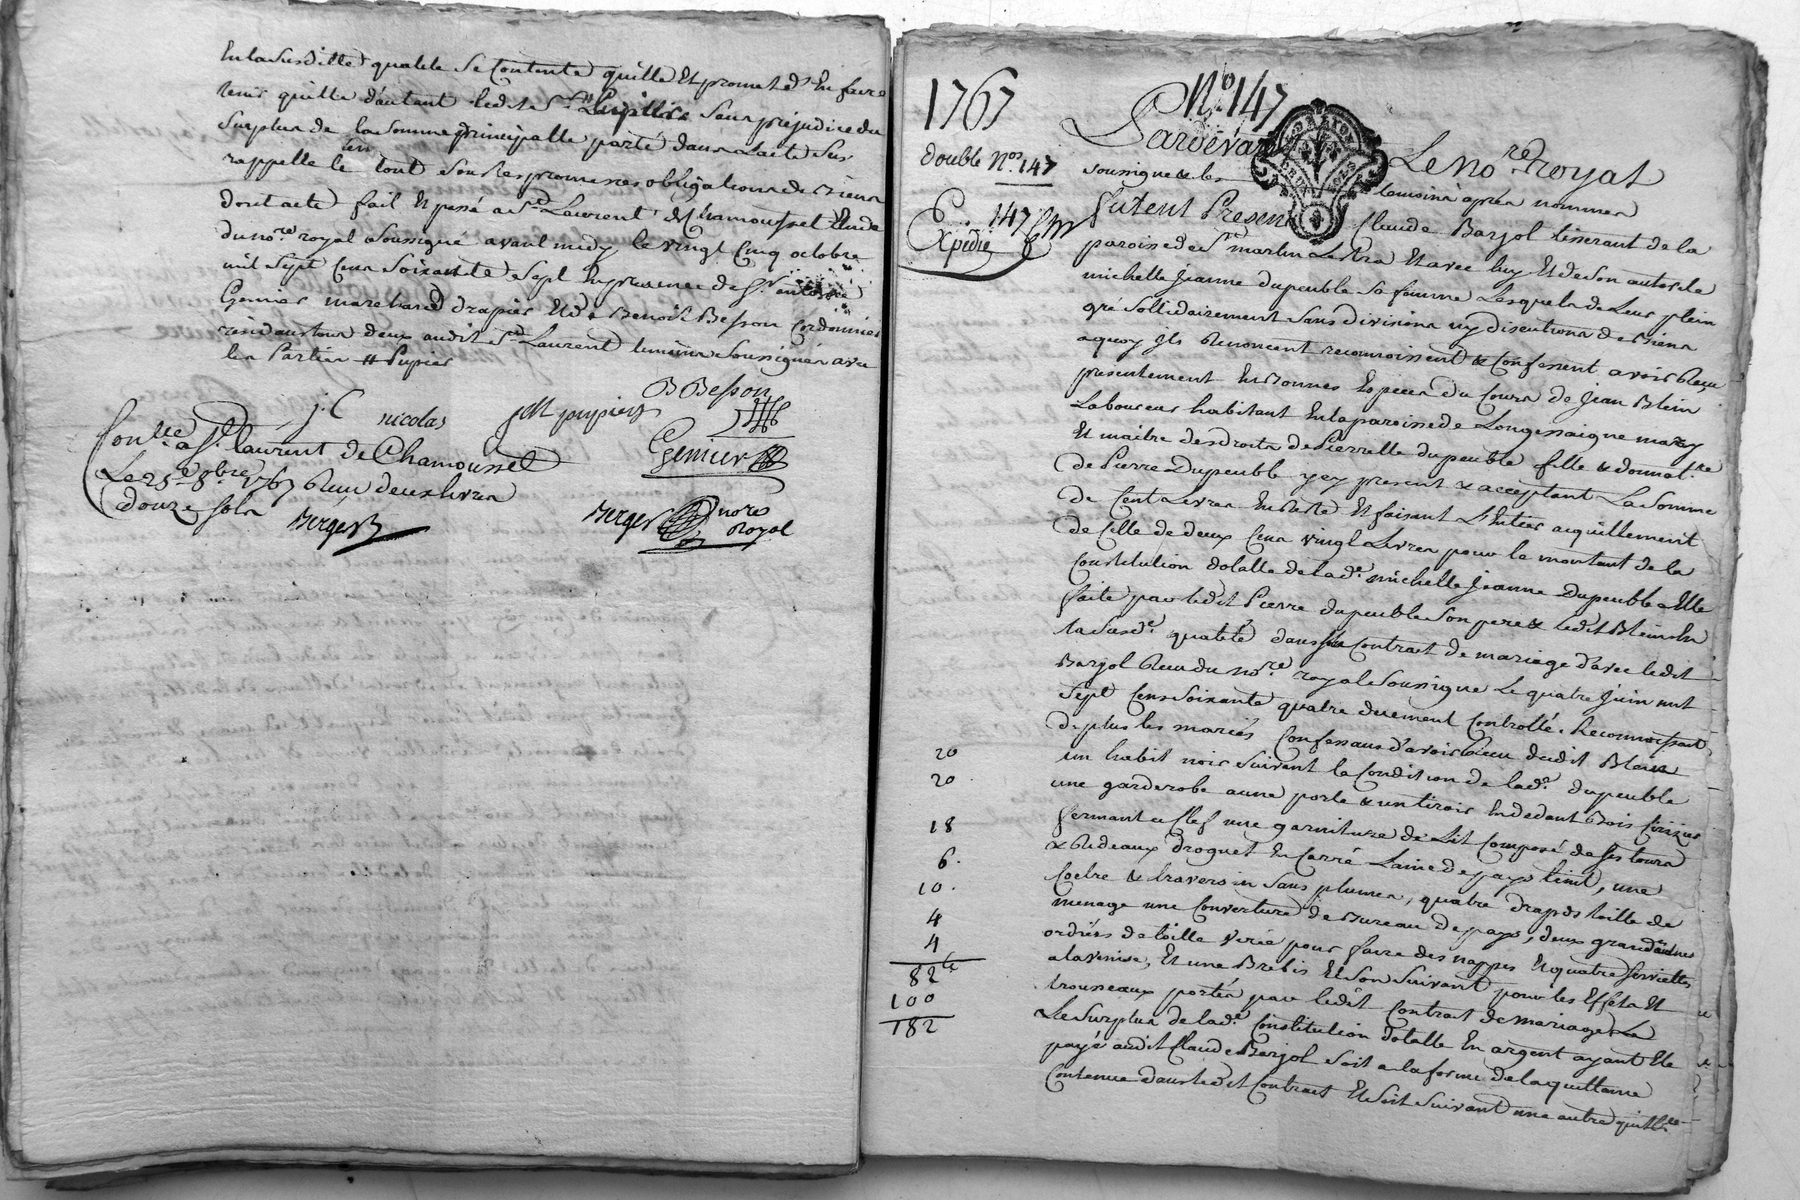 En lasusditte qualité se Contente quitte Et promet d'En faire
tenir quitte d'autant ledit Sr. sans prejudice du
Surplus de la Somme principalle porté dans L'acte Sus
rappellé le tout sous les promesses obligations de Biens
dont acte fait Et passé a St Laurent de Chamousset Etude
du nore. royal Soussigné avant midy le vingt Cinq octobre
mil Sept Cens Soixante Sept En presence de Sr. antoine
Genier marchand drapier Et de Benoit Besson Cordonnier
residans tous deux audit St Laurent temoins Soussignés avec
les Parties # Pupier
B Besson
j. C nicolas
Genier
Conlle. a St. laurent de Chamousset
Le 25e. 8bre. 1767 Reçu deux livres
douze sols
Berger
Berger nore
Royal
1767
No 147
double Nos. 147
147
Expedié
Pardevant Le Nore royal
soussigné & les temoins apres nommés
furent Presens Claude Barjol tisserant de la
paroisse de St martin Lestra Et avec luy Et de Son autorité
michelle Jeanne dupeuble sa femme Lesquels de Leur plein
gré sollidairement sans division ny discution de Biens
aquoy Ils Renoncent reconnoissent & Confessent avoir Reçu
presentement En Bonnes Especes du Cours de Jean Blein
Laboureur habitant En la paroisse de Longessaigne mary
Et maitre des droits de Pierrette dupeuble fille & donnatre
de Pierre Dupeuble yçy present & acceptant La Somme
de Cent Livres En Reste Et faisant L'Entier acquittement
de Celle de deux Cens vingt Livres pour le montant de la
Constitution dotalle de lade. michelle Jeanne Dupeuble a Elle
faite par ledit Pierre dupeuble Son pere & ledit Blein En
la Susde. qualité dans Contrat de mariage d'avec ledit
Barjol Reçu du nore royal Soussigné Le quatre Juin mil
Sept Cens Soixante quatre duement Controllé. Reconnoissant
de plus les mariés Confessans d'avoir Reçu dudit Blein
20 un habit noir suivant la Condition de lade. dupeuble
20 une garderobe a une porte & un tiroir En dedant Bois Cirizier
fermant a clef une garniture de Lit Composé de ses tours
18 & Rideaux droguet En Carré Laine de pays teint, une
6. Coëtre & traversin Sans plumes, quatre draps toille de
10. menage une Couverture de Bureau de pays, deux grands aunes
4 ordiés de toille verié pour faire des nappes Et quatre serviettes
4 a la venise, Et une Brebis Et Son Suivant pour les Effets Et
82lt trousseaux portés par ledit Contrat de mariage, La
100 Le Surplus de lade. Constitution dotalle En argent ayant Eté
182 payé audit Claude Barjol soit a la forme de la quittance
Contenue dans ledit Contrat Et soit suivant une autre quittce.